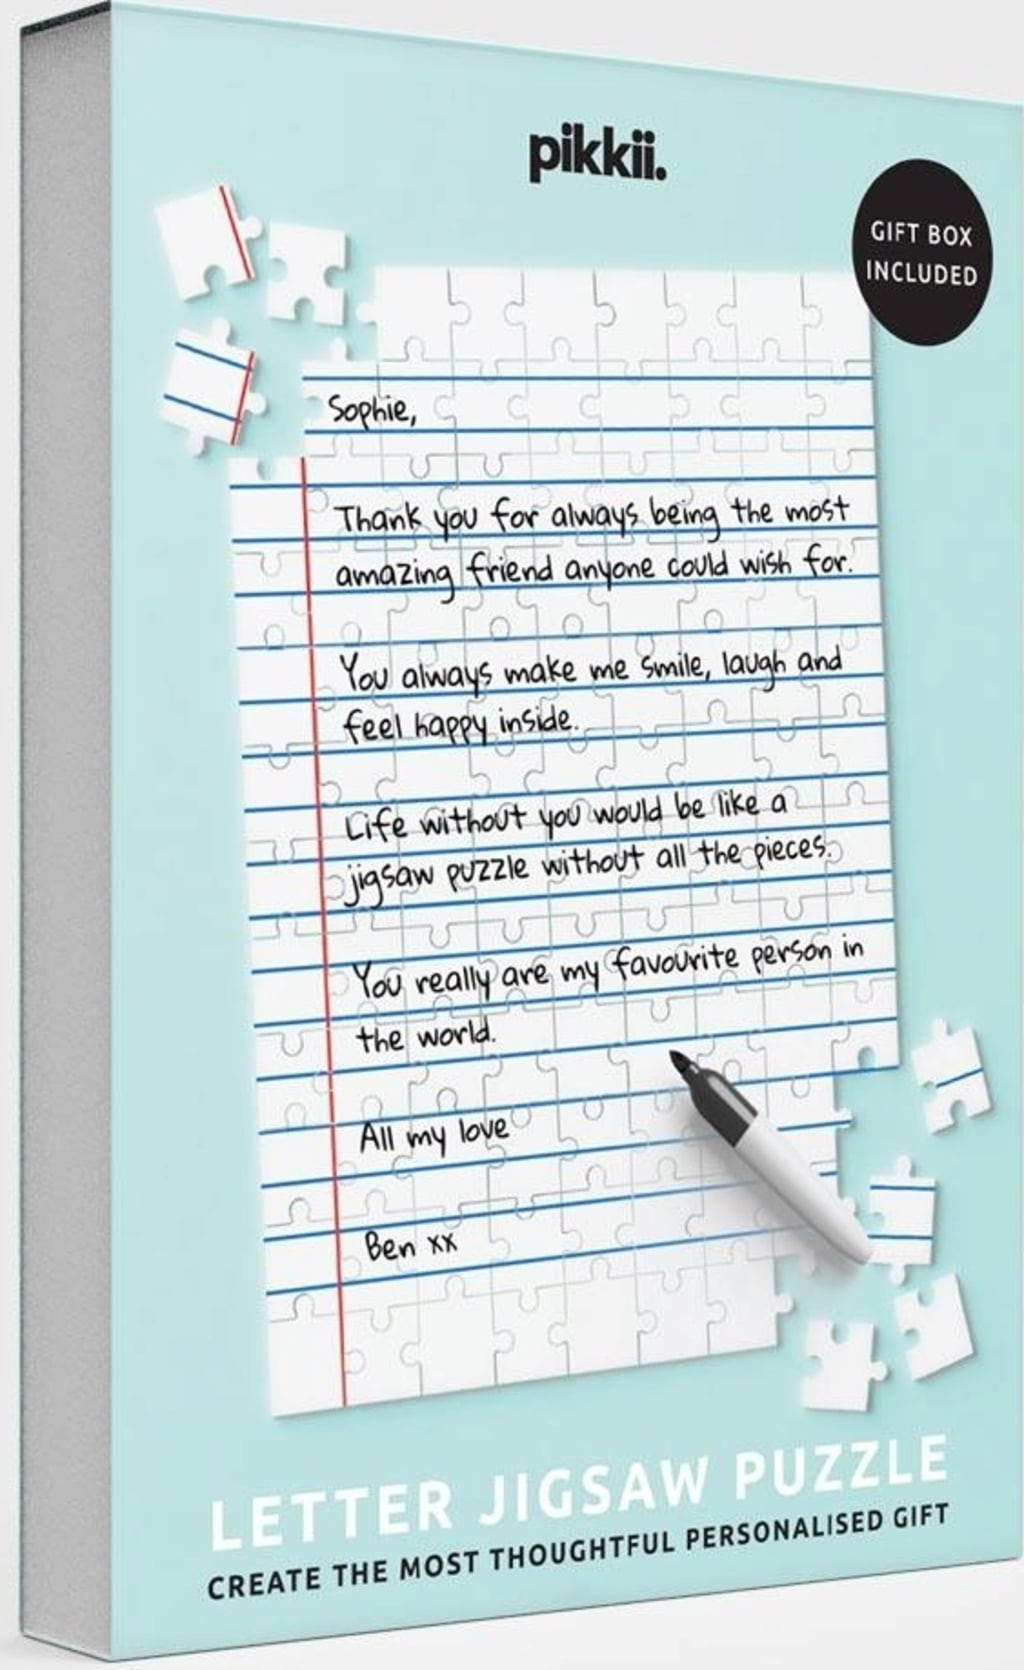 pikkii.
GIFT BOX
INCLUDED
Sophie,
Thank you for always being the most
amazing friend anyone could wish for.
You always make me smile, laugh and
feel happy inside.
Life without you would be like a
jigsaw puzzle without all the pieces.
You really are my favourite person in
the world.
All my love
Ben xx
LETTER JIGSAW PUZZLE
CREATE THE MOST THOUGHTFUL PERSONALISED GIFT